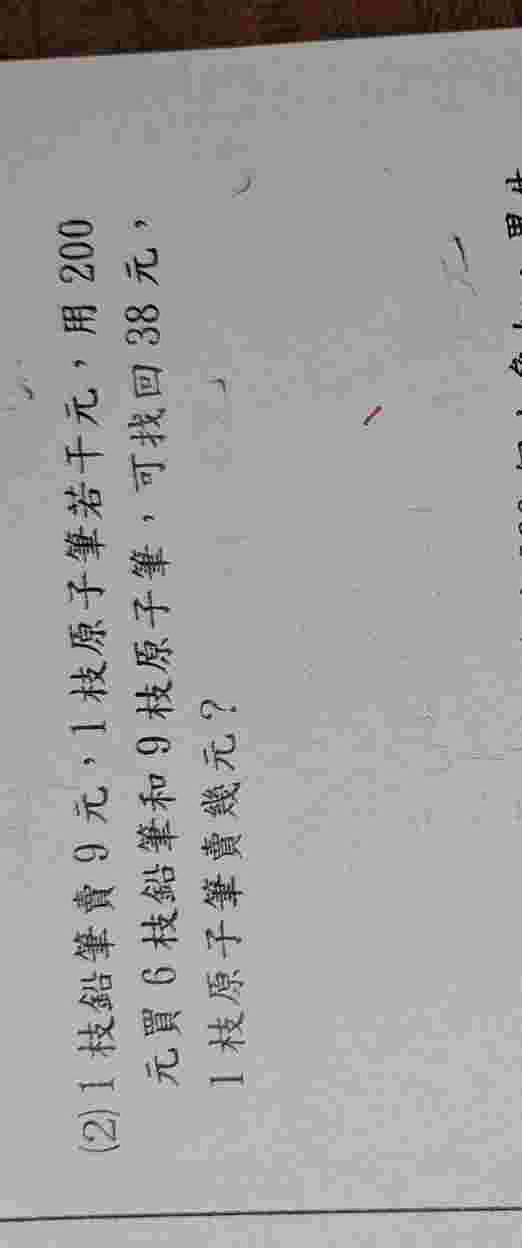 (2) 1 枝鉛筆賣 9 元，1 枝原子筆若干元，用 200
元買 6 枝鉛筆和 9 枝原子筆，可找回 38 元，
1 枝原子筆賣幾元？